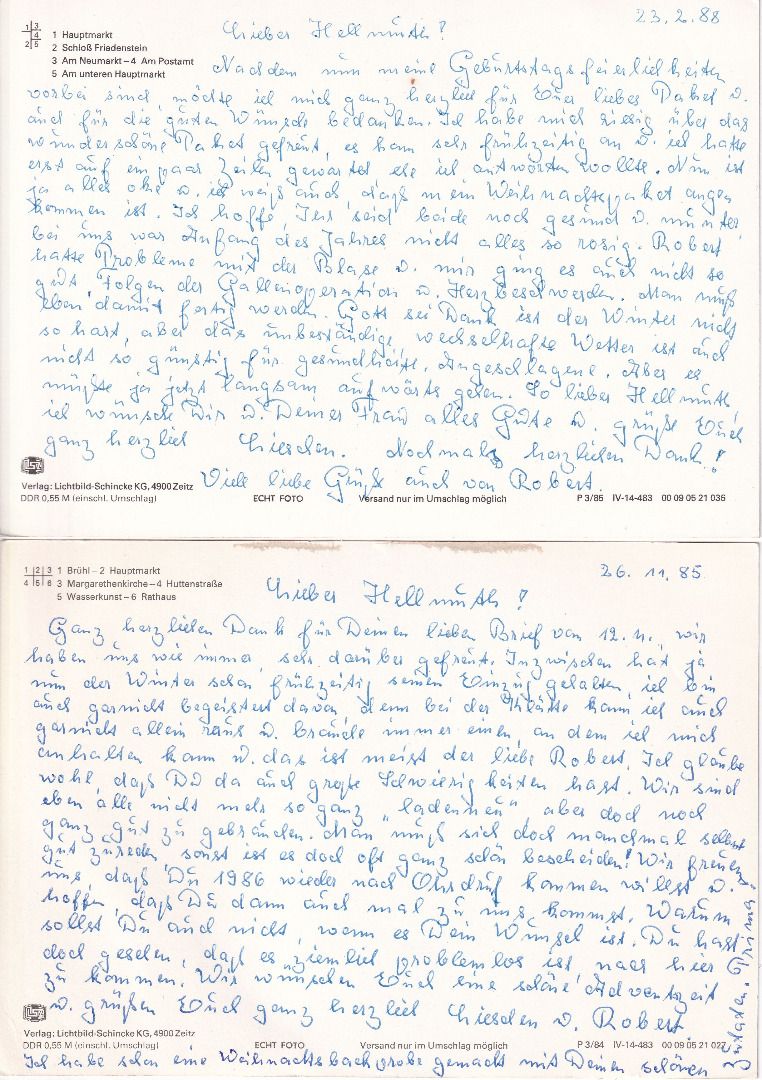 1 Hauptmarkt
2 Schloß Friedenstein
3 Am Neumarkt – 4 Am Postamt
5 Am unteren Hauptmarkt
23.2.88
Lieber Hellmuth!
Nachdem nun meine Geburtstagsfeierlichkeiten
vorbei sind, möchte ich mich ganz herzlich für Euer liebes Paket u.
auch für die guten Wünsche bedanken. Ich habe mich riesig über das
wunderschöne Paket gefreut, es kam sehr frühzeitig an u. ich hatte
erst auf ein paar Zeilen gewartet ehe ich antworten wollte. Nun ist
ja alles oke u. ich weiß auch, daß mein Weihnachtspaket angen
kommen ist. Ich hoffe, Ihr seid beide noch gesund u. munter,
bei uns war Anfang des Jahres nicht alles so rosig. Robert
hatte Probleme mit der Blase u. mir ging es auch nicht so
gut, Folgen der Gallenoperation u. Herzbeschwerden. Man muß
eben damit fertig werden. Gott sei Dank ist der Winter nicht
so hart, aber das unbeständige, wechselhafte Wetter ist auch
nicht so günstig für gesundheitl. Angeschlagene. Aber es
müßte ja jetzt langsam aufwärts gehen. So lieber Hellmuth,
ich wünsche Dir u. Deiner Frau alles Gute u. grüße Euch
ganz herzlich Lieschen. Nochmals herzlichen Dank!
Viele liebe Grüße auch von Robert.
Verlag: Lichtbild-Schincke KG, 4900 Zeitz
DDR 0,55 M (einschl. Umschlag) ECHT FOTO Versand nur im Umschlag möglich P 3/85 IV-14-483 00 09 05 21 036
1 2 3 1 Brühl – 2 Hauptmarkt
4 5 6 3 Margarethenkirche – 4 Huttenstraße
5 Wasserkunst – 6 Rathaus
26.11.85
Lieber Hellmuth!
Ganz herzlichen Dank für Deinen lieben Brief vom 12.11., wir
haben uns wie immer, sehr darüber gefreut. Inzwischen hat ja
nun der Winter schon frühzeitig seinen Einzug gehalten, ich bin
auch garnicht begeistert davon, denn bei der Glätte kann ich auch
garnicht allein raus u. brauche immer einen, an dem ich mich
anhalten kann u. das ist meist der liebe Robert. Ich glaube
wohl, daß Du da auch große Schwierigkeiten hast. Wir sind
eben alle nicht mehr so ganz „ladenneu", aber doch noch
ganz gut zu gebrauchen. Man muß sich doch manchmal selbst
gut zureden, sonst ist es doch oft ganz schön bescheiden! Wir freuen
uns, daß Du 1986 wieder nach Ohrdruf kommen willst u.
hoffen, daß Du dann auch mal zu uns kommst. Warum
sollst Du auch nicht, wenn es Dein Wunsch ist. Du hast
doch gesehen, daß es ziemlich problemlos ist, nach hier
zu kommen. Wir wünschen Euch eine schöne Adventszeit
u. grüßen Euch ganz herzlich Lieschen u. Robert.
Verlag: Lichtbild-Schincke KG, 4900 Zeitz
DDR 0,55 M (einschl. Umschlag) ECHT FOTO Versand nur im Umschlag möglich P 3/84 IV-14-483 00 09 05 21 027
Ich habe schon eine Weihnachtsbackprobe gemacht mit Deinen schönen
Zutaten. Prima